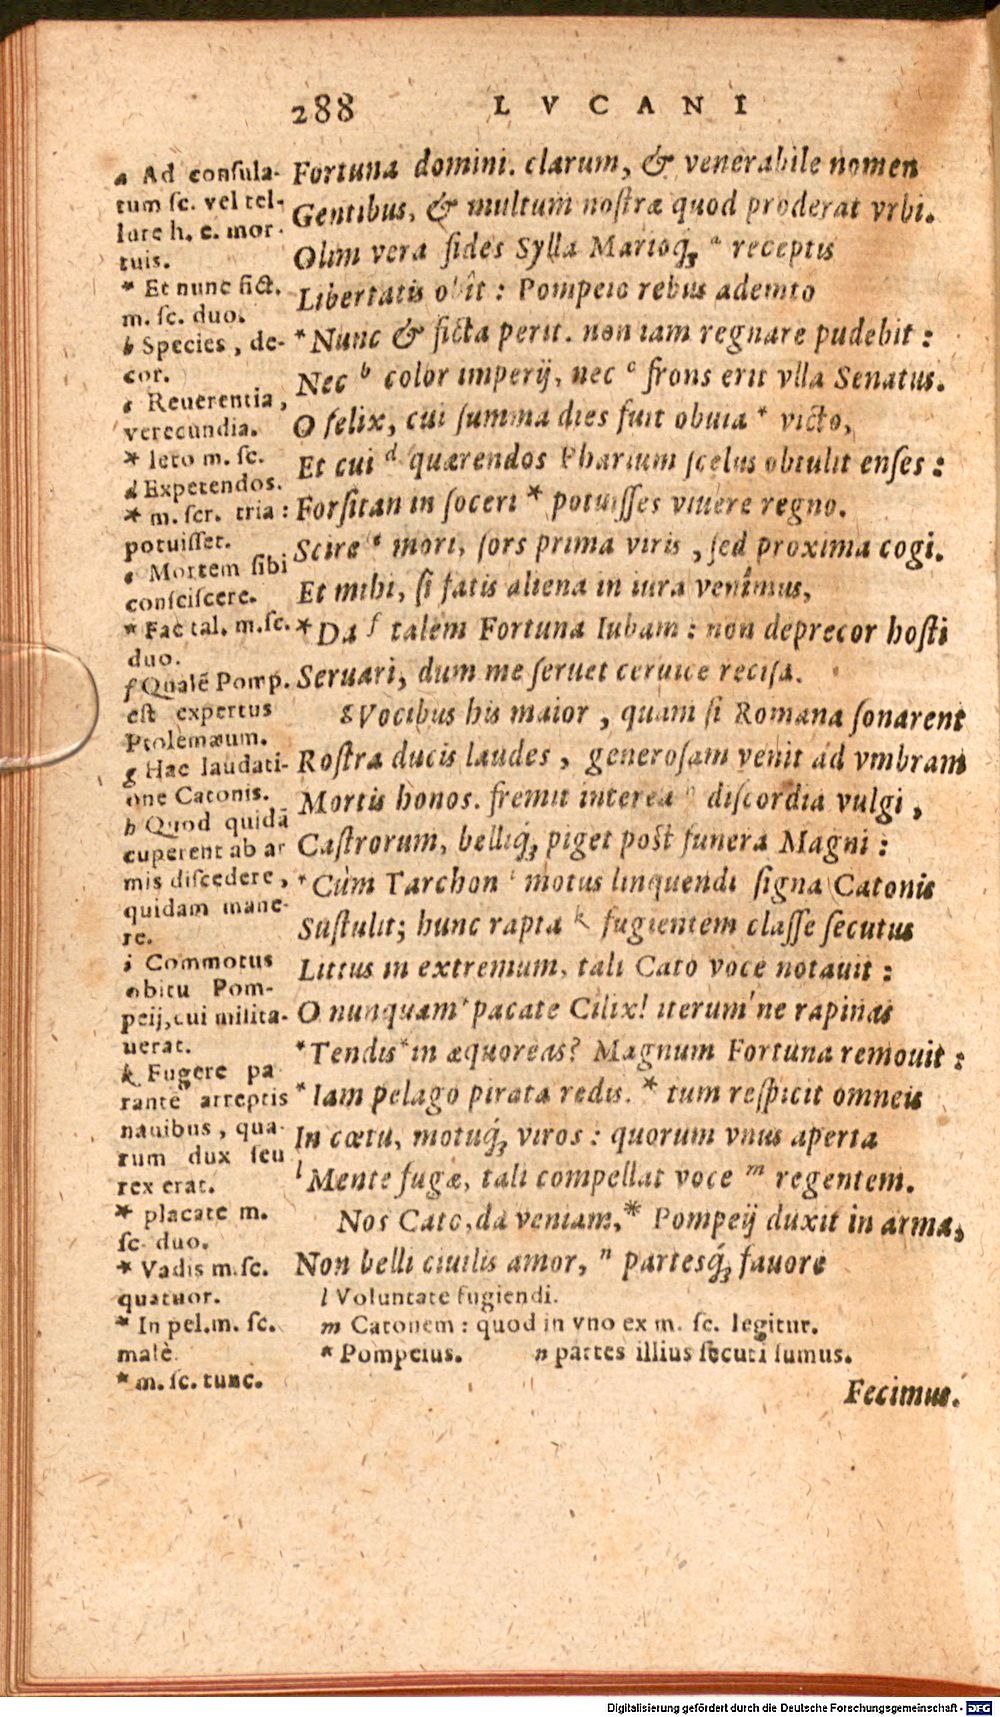 288 LVCANI
Fortuna domini. clarum, & venerabile nomen
Gentibus, & multum nostræ quod proderat vrbi.
Olim vera fides Sylla Marioq́; a receptis
Libertatis obît : Pompeio rebus ademto
*Nunc & ficta perit. non iam regnare pudebit :
Nec b color imperij, nec c frons erit vlla Senatus.
O felix, cui summa dies fuit obuia * victo,
Et cui d quærendos Pharium scelus obtulit enses :
Forsitan in soceri * potuisses viuere regno.
Scire e mori, sors prima viris , sed proxima cogi.
Et mihi, si fatis aliena in iura venîmus,
*Da f talem Fortuna Iubam : non deprecor hosti
Seruari, dum me seruet ceruice recisa.
g Vocibus his maior , quam si Romana sonarent
Rostra ducis laudes , generosam venit ad vmbram
Mortis honos. fremit interea h discordia vulgi ,
Castrorum, belliq́; piget post funera Magni :
*Cùm Tarchon i motus linquendi signa Catonis
Sustulit; hunc rapta k fugientem classe secutus
Littus in extremum, tali Cato voce notauit :
O nunquam * pacate Cilix! iterum'ne rapinas
*Tendis * in æquoreas? Magnum Fortuna remouit :
*Iam pelago pirata redis. * tum respicit omneis
In cœtu, motuq́; viros : quorum vnus aperta
l Mente fugæ, tali compellat voce m regentem.
Nos Cato, da veniam, * Pompeij duxit in arma,
Non belli ciuilis amor, n partesq́; fauore
a Ad consula-
tum sc. vel tel-
lure h. e. mor-
tuis.
* Et nunc fict.
m. sc. duo.
b Species , de-
cor.
c Reuerentia ,
verecundia.
* leto m. sc.
d Expetendos.
* m. scr. tria :
potuisset.
e Mortem sibi
consciscere.
* Fac tal. m. sc.
duo.
f Qualē Pomp.
est expertus
Ptolemæum.
g Hac laudati-
one Catonis.
h Quod quidā
cuperent ab ar
mis discedere ,
quidam mane-
re.
i Commotus
obitu Pom-
peij, cui milita-
uerat.
k Fugere pa
rantē arreptis
nauibus , qua-
rum dux seu
rex erat.
* placate m.
sc. duo.
* Vadis m. sc.
quatuor.
* In pel. m. sc.
malè.
* m. sc. tunc.
l Voluntate fugiendi.
m Catonem : quod in vno ex m. sc. legitur.
* Pompeius. n partes illius secuti sumus.
Fecimus.
Digitalisierung gefördert durch die Deutsche Forschungsgemeinschaft - DFG